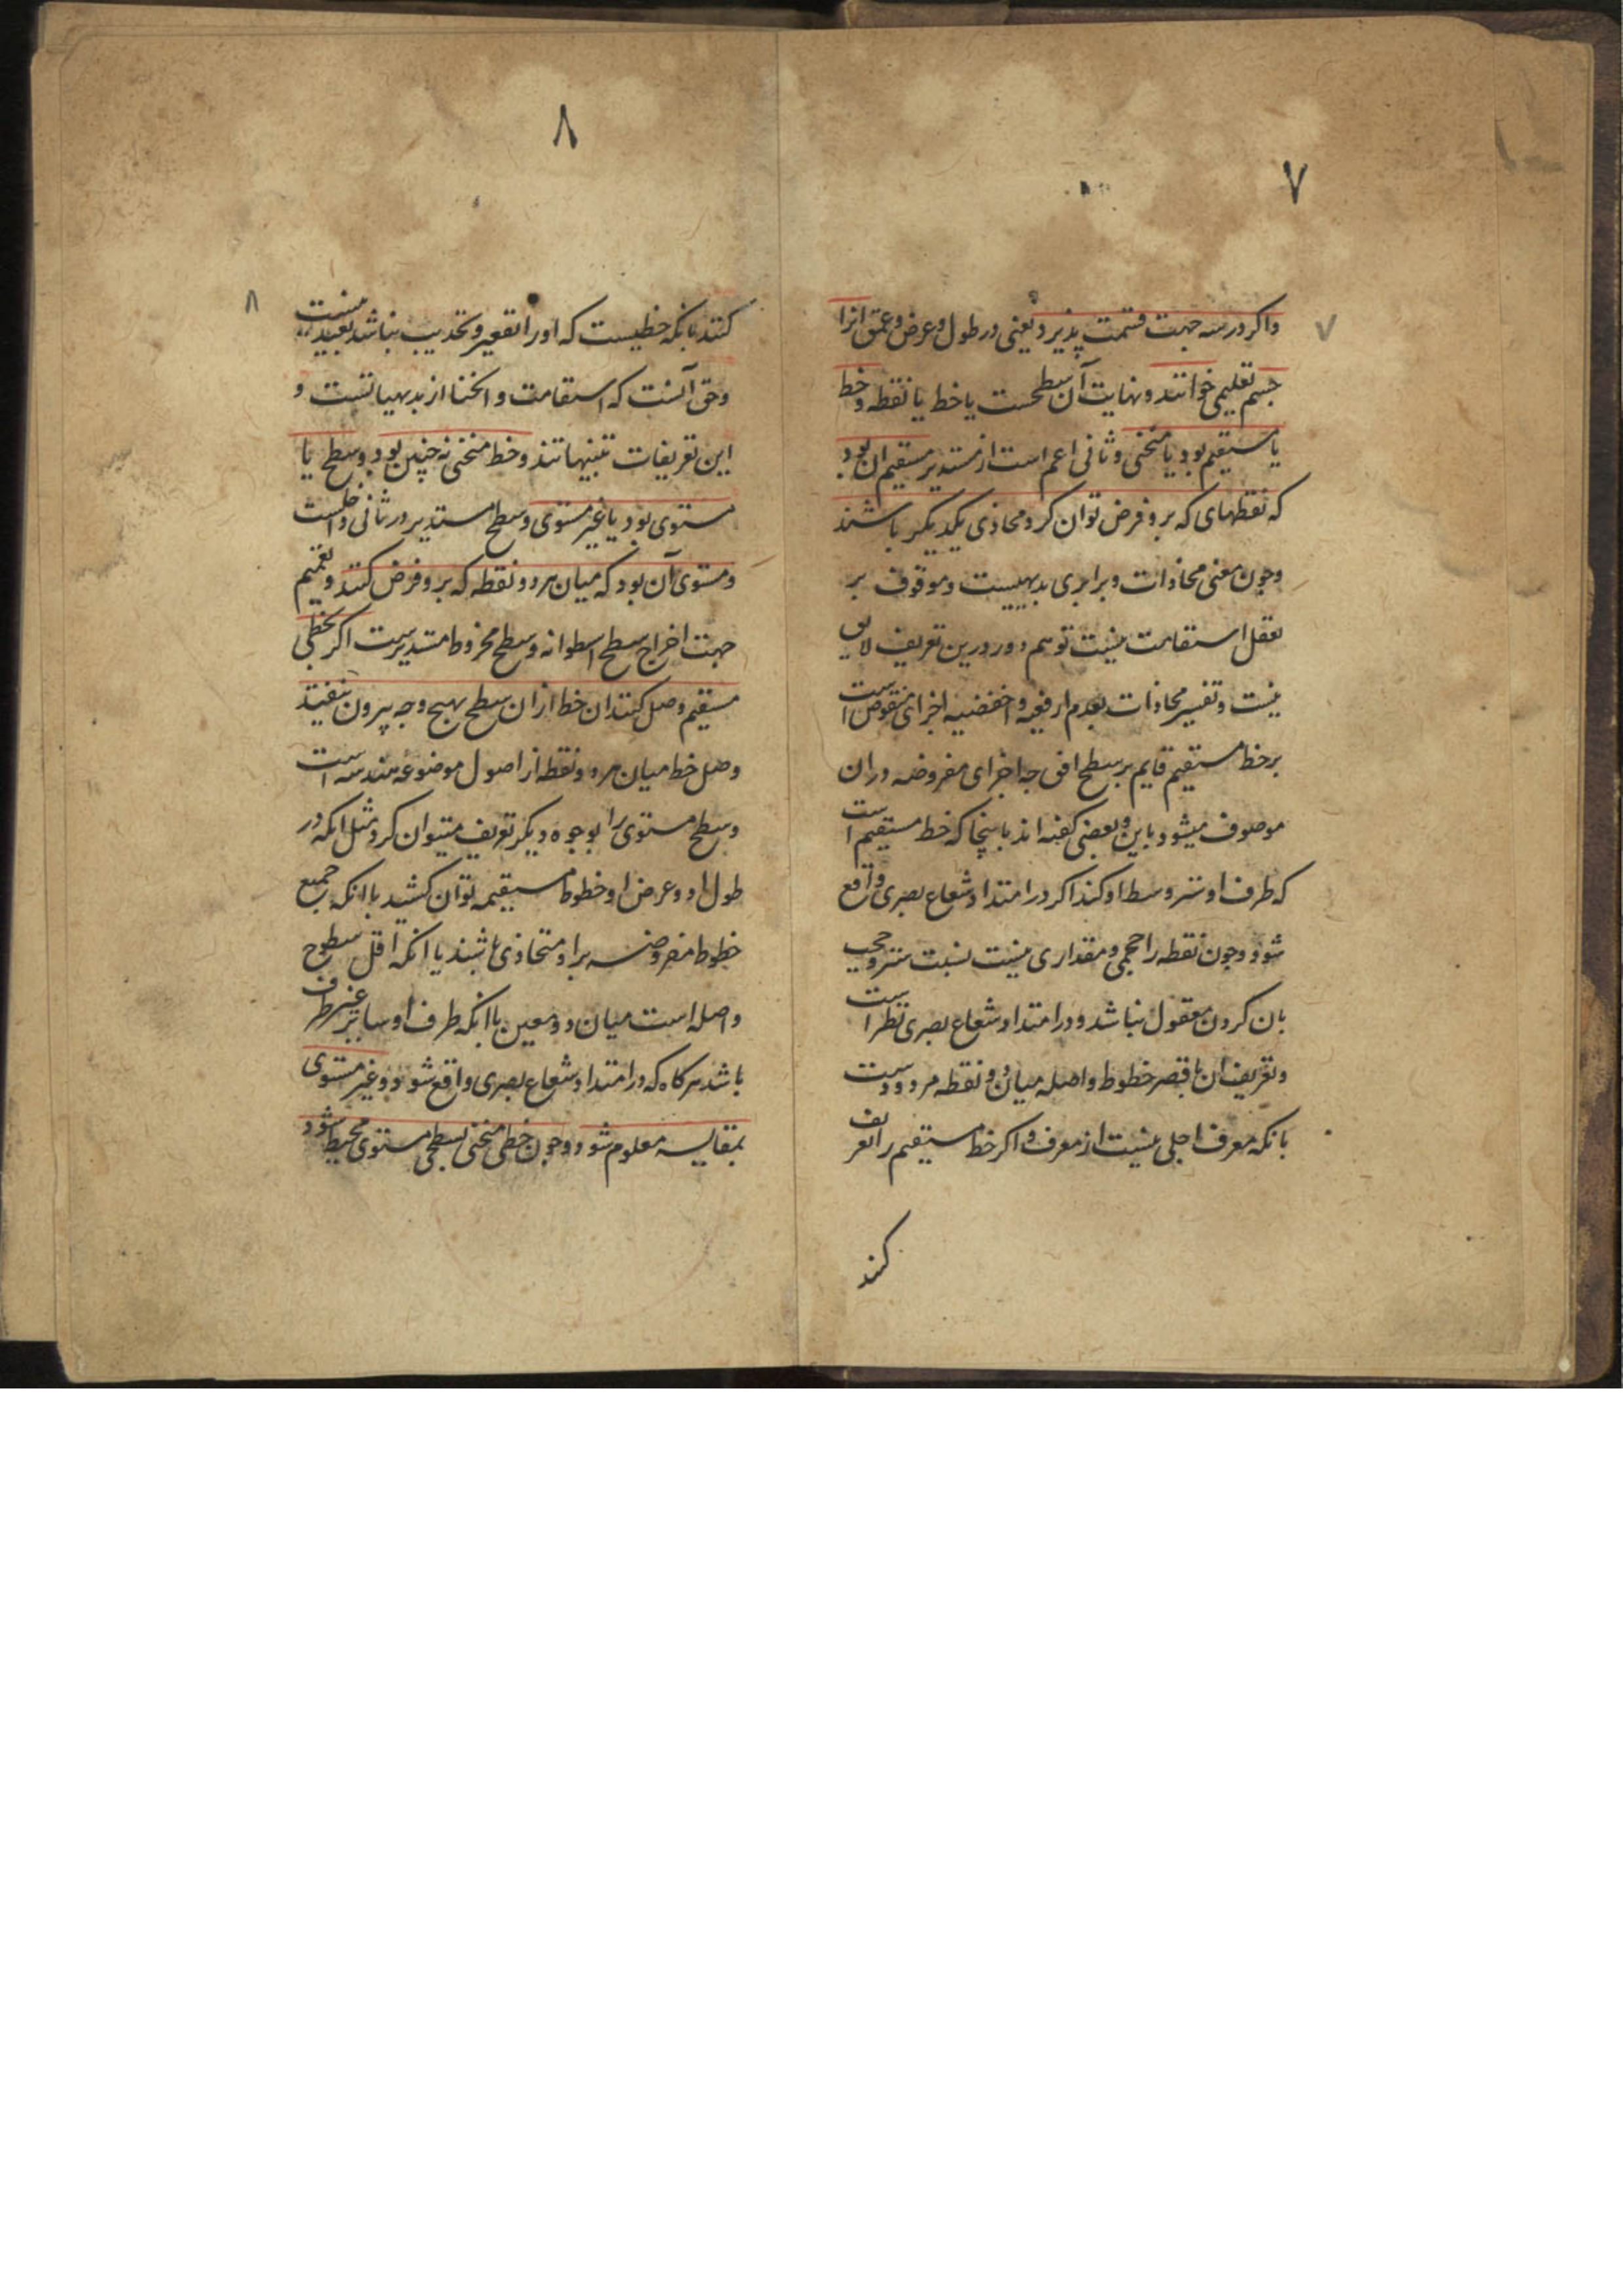 ۷
واکر در سه جهت قسمت پذیرد یعنی در طول و عرض و عمق انرا
جسم تعلیمی خوانند و نهایت آن سطحست یا خط یا نقطه و خط
یا مستقیم بود یا منحنی و ثانی اعم است از مستدیر مستقیم ان بود
که نقطهای که برو فرض توان کرد محاذی یکدیکر باشند
وچون معنی محاذات و برابری بدیهیست و موقوف بر
تعقل استقامت نیست توهم دور درین تعریف لایق
نیست و تفسیر محاذات بعدم ارفعیه و اخفضیه اجزای منقوض است
بر خط مستقیم قایم بر سطح افق چه اجزای مفروضه در ان
موصوف میشود باین و بعضی کفته اند باینجا که خط مستقیم است
که طرف او ستر وسط او کند اکر در امتداد شعاع بصری واقع
شود و چون نقطه را حجمی و مقداری نیست نسبت ستر و حجب
بان کردن معقول نباشد و در امتداد شعاع بصری نظر است
و تعریف ان باقصر خطوط واصله میان دو نقطه مردودست
بانکه معرف اجلی نیست از معرف و اکر خط مستقیم را تعریف
کنند
۷
۸
کنند بانکه خطیست که او را تقعیر و تحدیب نباشد بعید نیست
وحق آنست که استقامت و انحنا از بدیهیاتست و
این تعریفات تنبیهاتند و خط منحنی نه چنین بود و سطح یا
مستوی بود یا غیر مستوی و سطح مستدیر در ثانی داخلست
و مستوی آن بود که میان هر دو نقطه که برو فرض کنند و تعمیم
جهت اخراج سطح اسطوانه و سطح مخروط مستدیرست اکر بخطی
مستقیم وصل کنند ان خط از ان سطح بهیچ وجه بیرون نیفتد
وصل خط میان هر دو نقطه از اصول موضوعه هندسه است
و سطح مستوی را بوجوه دیکر تعریف میتوان کرد مثل انکه در
طول او و عرض او خطوط مستقیمه توان کشید یا انکه جمیع
خطوط مفروضه بر او متحاذی باشند یا انکه اقل سطوح
واصله است میان دو معین یا انکه طرف او ساتر غیر طرف
باشد هر کاه که در امتداد شعاع بصری واقع شود و غیر مستوی
بمقایسه معلوم شود و چون خطی منحنی بسطحی مستوی محیط شود
۸